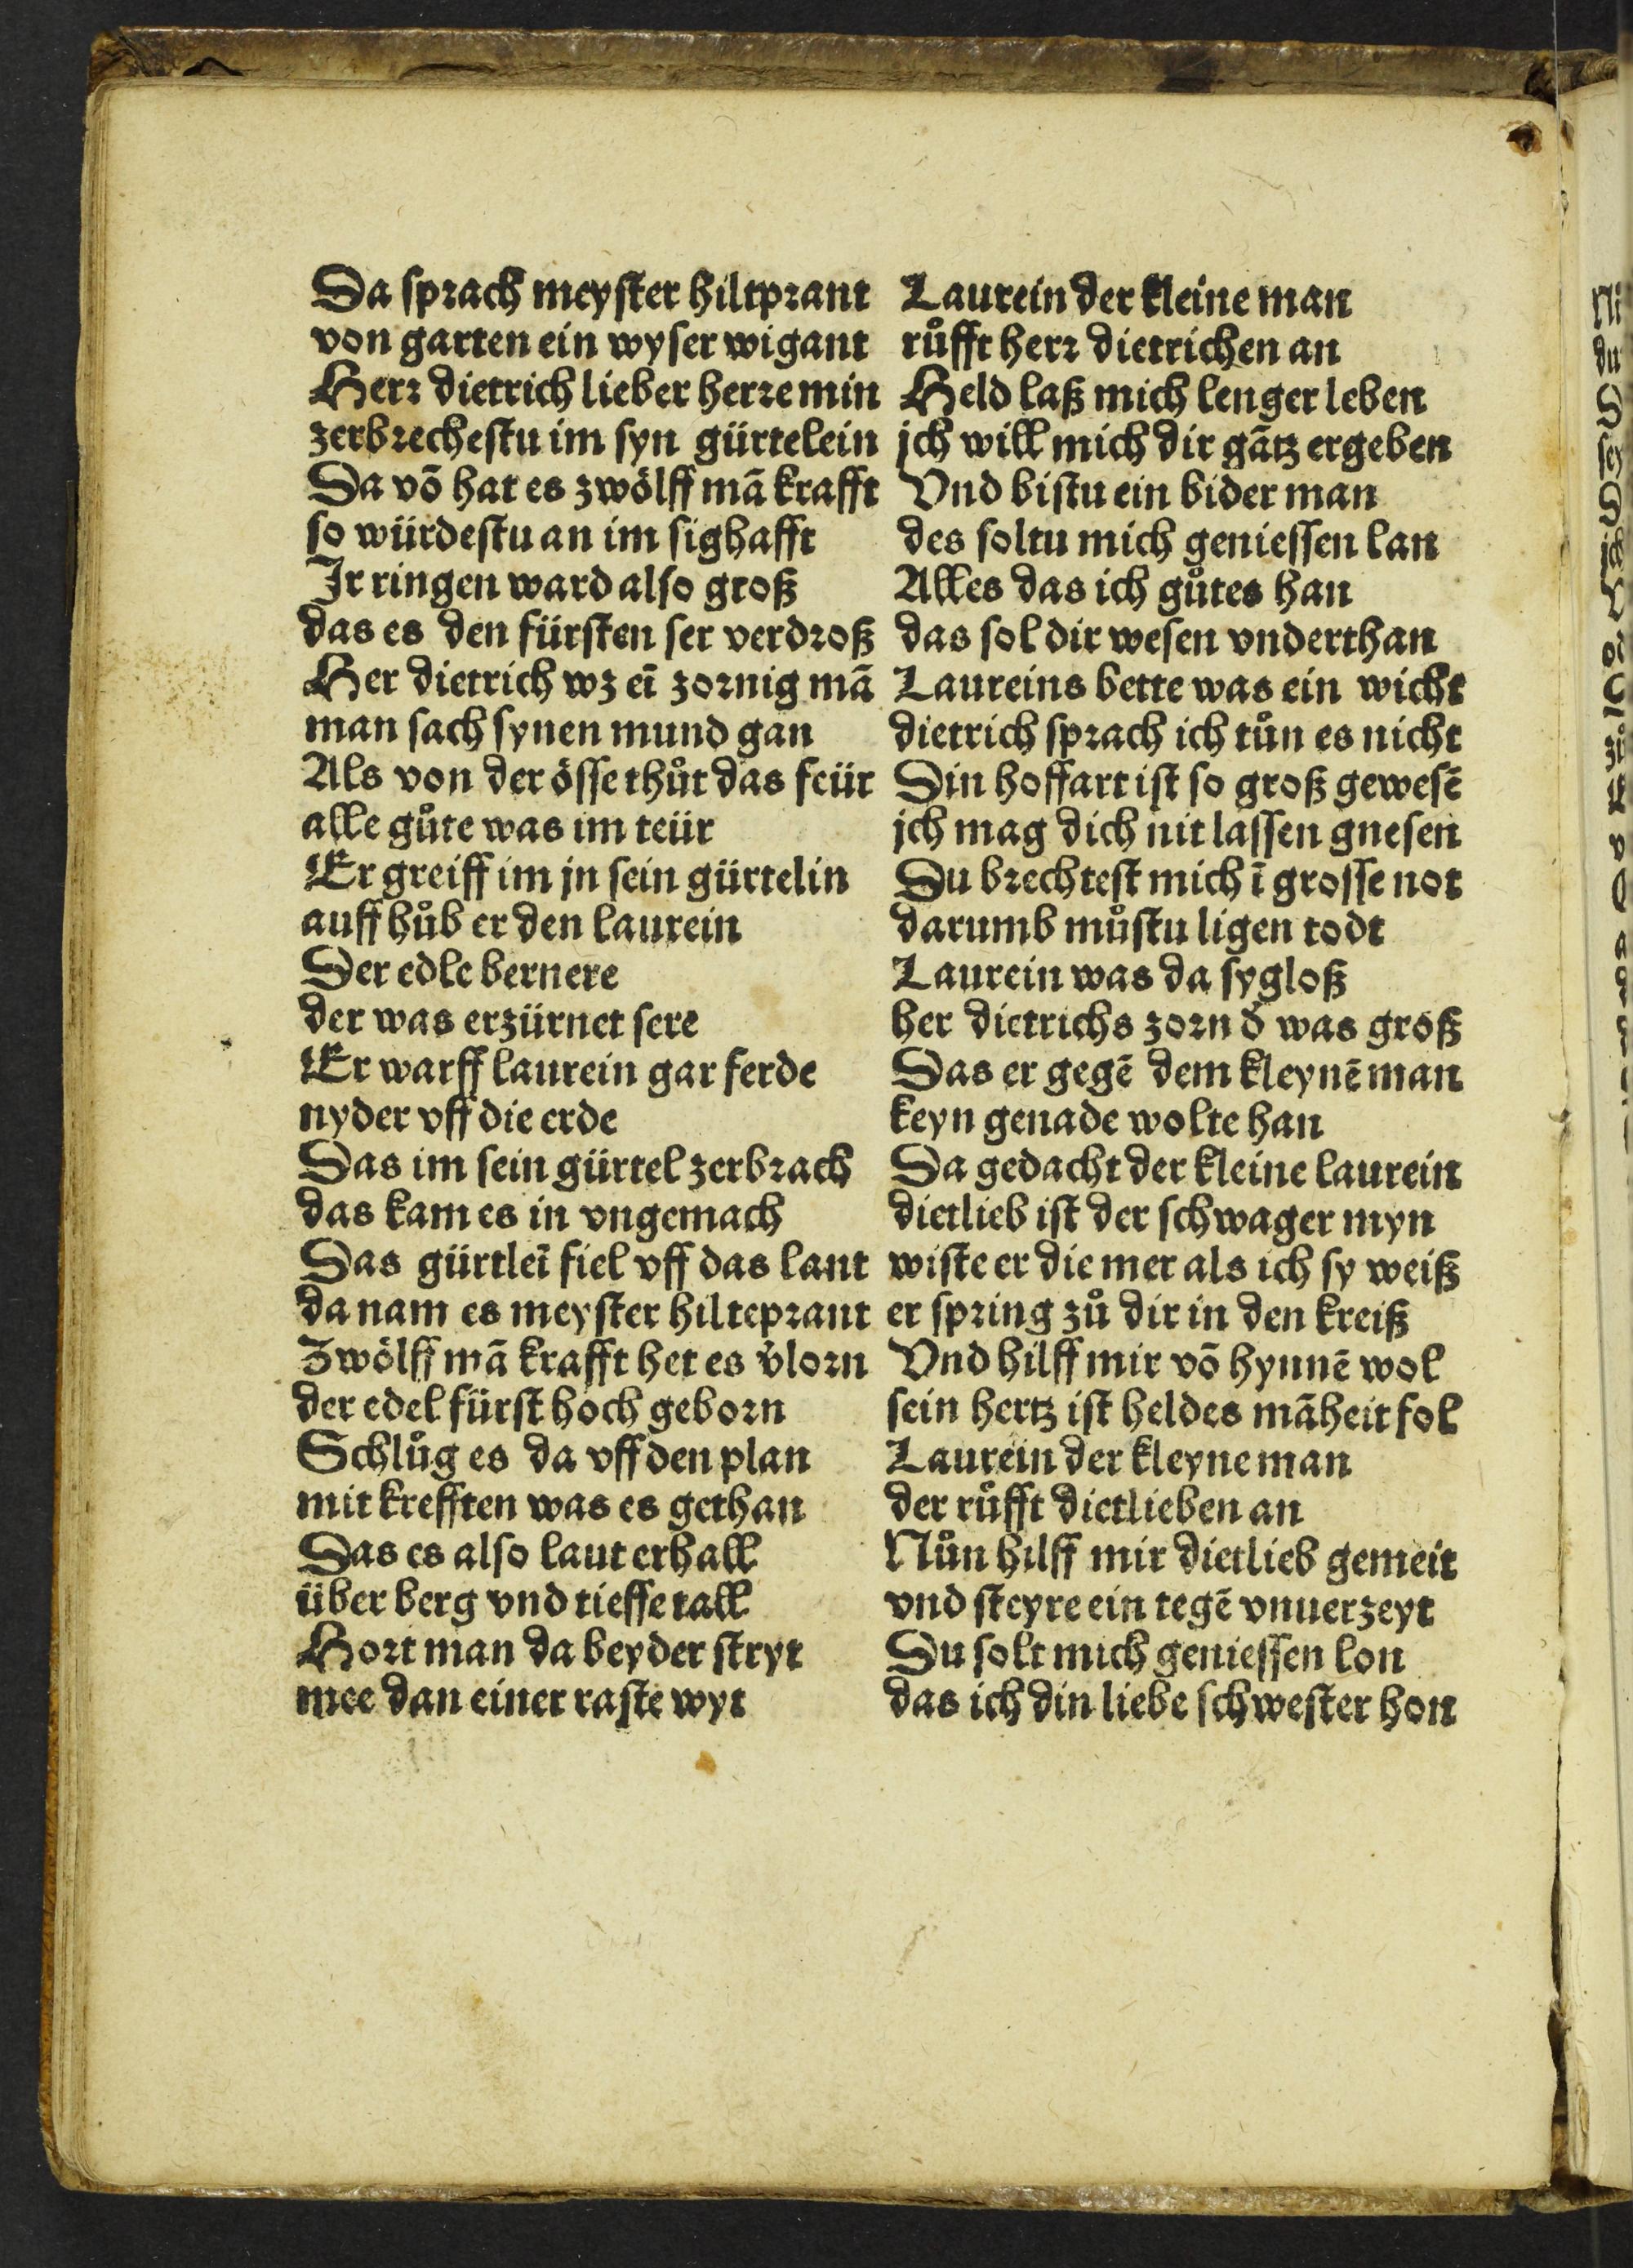 Da sprach meyster hiltprant
von garten ein wyser wigant
Herr dietrich lieber herre min
zerbrechestu im syn gürtelein
Da vō hat es zwölff mā krafft
so würdestu an im sighafft
Ir ringen ward also groß
das es den fürsten ser verdroß
Her dietrich wz eī zornig mā
man sach synen mund gan
Als von der össe thůt das feür
alle gůte was im teür
Er greiff im jn sein gürtelin
auff hůb er den laurein
Der edle bernere
der was erzürnet sere
Er warff laurein gar ferde
nyder vff die erde
Das im sein gürtel zerbrach
das kam es in vngemach
Das gürtleī fiel vff das lant
da nam es meyster hilteprant
Zwölff mā krafft het es v̄lorn
der edel fürst hoch geborn
Schlůg es da vff den plan
mit krefften was es gethan
Das es also laut erhall
über berg vnd tieffe tall
Hort man da beyder stryt
mee dan einer raste wyt
Laurein der kleine man
růfft herr dietrichen an
Held laß mich lenger leben
jch will mich dir gātz ergeben
Vnd bistu ein bider man
des soltu mich geniessen lan
Alles das ich gůtes han
das sol dir wesen vnderthan
Laureins bette was ein wicht
dietrich sprach ich tůn es nicht
Din hoffart ist so groß gewesē
jch mag dich nit lassen gnesen
Du brechtest mich ī grosse not
darumb můstu ligen todt
Laurein was da sygloß
her dietrichs zorn d̄ was groß
Das er gegē dem kleynē man
keyn genade wolte han
Da gedacht der kleine laurein
dietlieb ist der schwager myn
wiste er die mer als ich sy weiß
er spring zů dir in den kreiß
Vnd hilff mir vō hynnē wol
sein hertz ist heldes māheit fol
Laurein der kleyne man
der růfft dietlieben an
Nůn hilff mir dietlieb gemeit
vnd steyre ein tegē vnuerzeyt
Du solt mich geniessen lon
das ich din liebe schwester hon